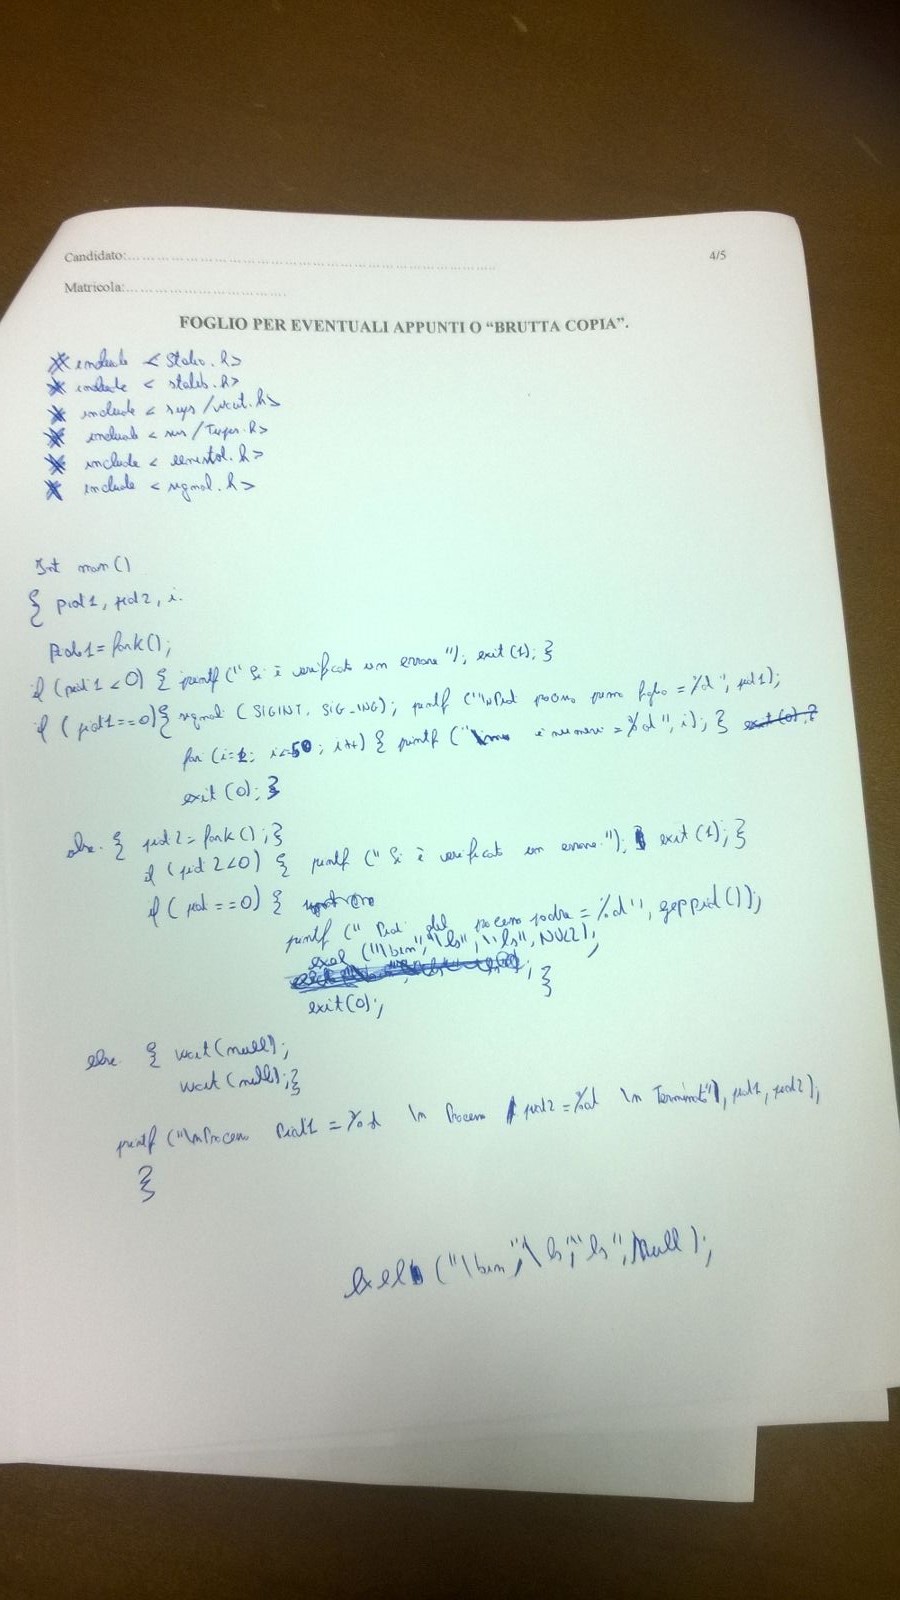 Candidato:
4/5
Matricola:
FOGLIO PER EVENTUALI APPUNTI O “BRUTTA COPIA”.
# include < stdio. h>
# include < stdlib. h>
# include < sys /wait. h>
# include < sys /Types. h>
# include < unistd. h>
# include < signal. h>
Int main ()
{ pid1, pid2, i.
pid1 = fork();
if (pid1 <0) { printf (" Si è verificato un errore "); exit (1); }
if (pid1 ==0) { signal ( SIGINT, SIG_ING); printf ("\nPid processo primo figlio = %d ", pid1);
for (i=1; i<=50; i++) { printf ("\n i numeri = %d ", i); } exit (0);
exit (0); }
else { pid2 = fork () ; }
if (pid2<0) { printf (" Si è verificato un errore "); exit (1); }
if (pid ==0) {
printf (" Pid del processo padre = %d ", geppid ());
exel ("\bin", "\ls", "\ls", NULL);
exit (0); }
else { wait (null);
wait (null); }
printf ("\nProcesso Pid1 = %d \n Processo pid2 = %d \n Terminati"), pid1, pid2);
}
exel ("\bin", "\ls", "ls", Null );